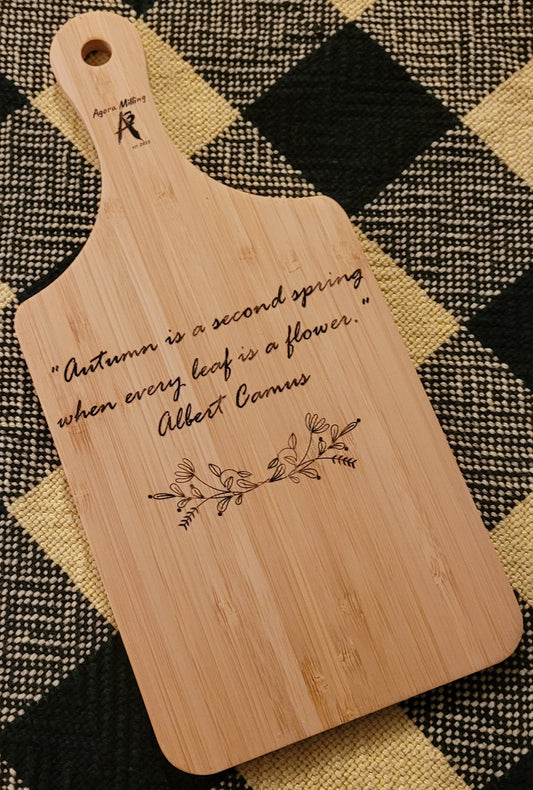 Agora Milling
"Autumn is a second spring
when every leaf is a flower."
Albert Camus